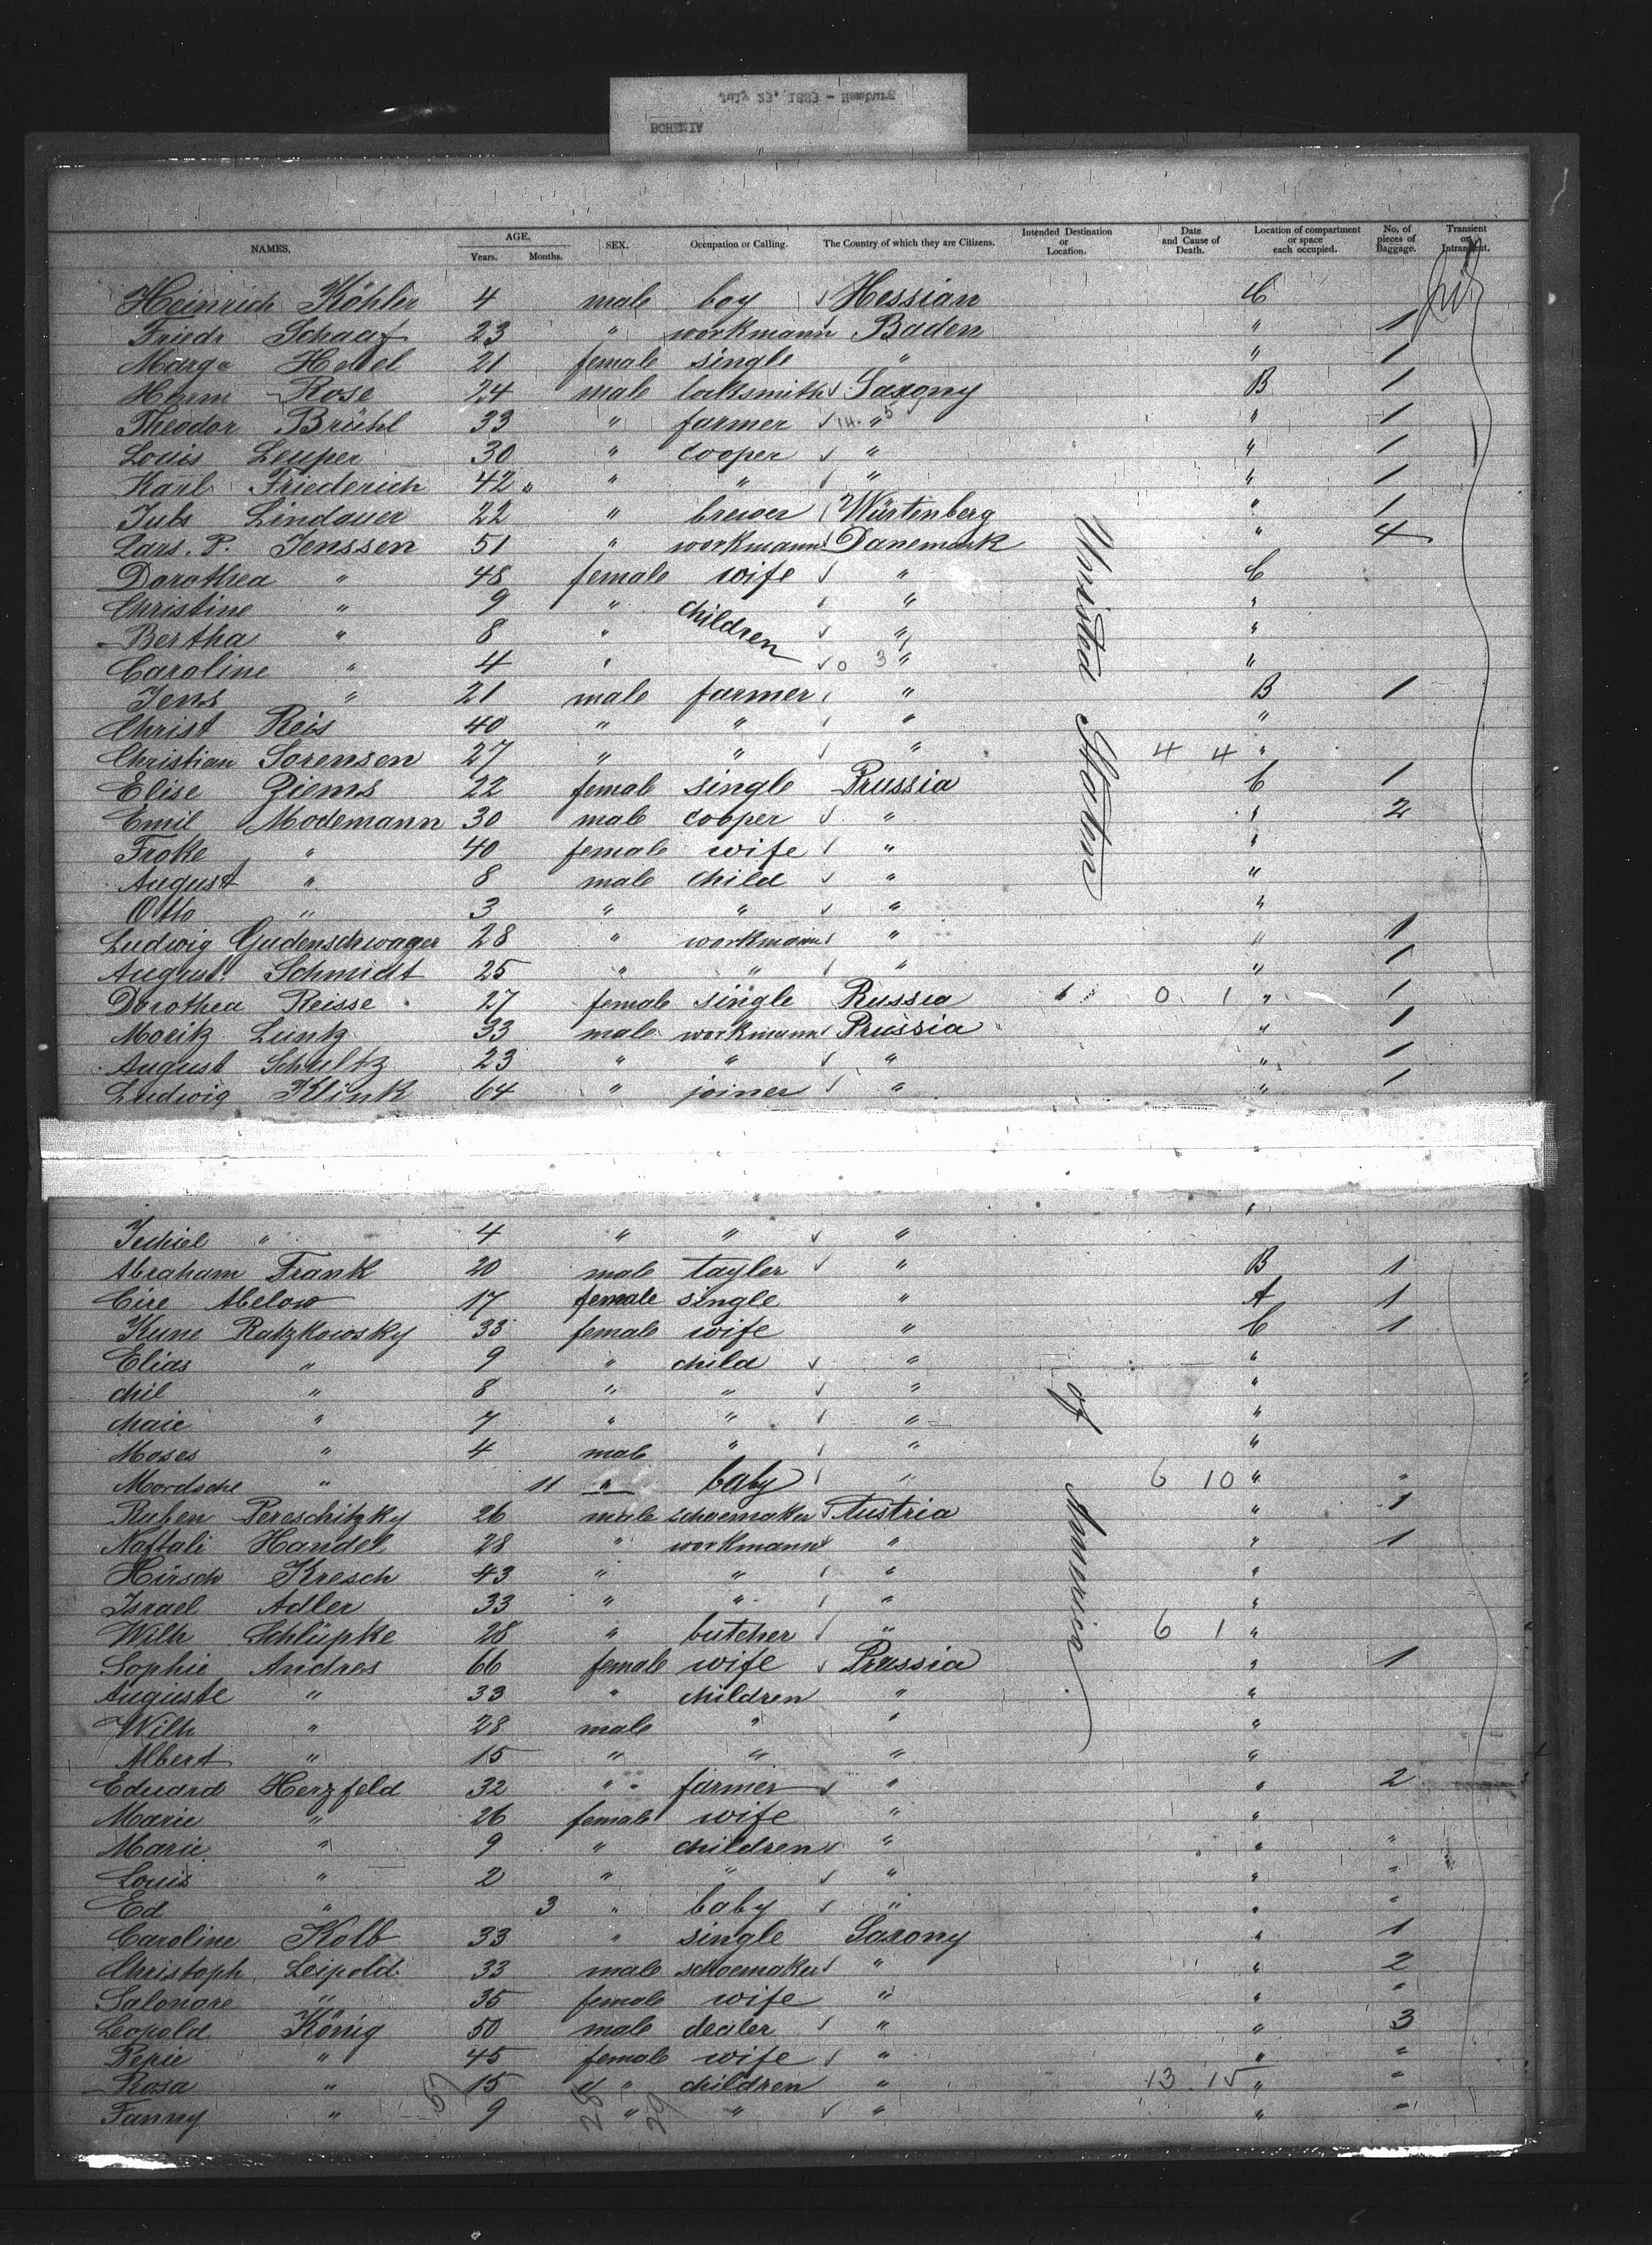 July 23, 1883 - Hamburg
BOHEMIA
NAMES. AGE. Years. Months. SEX. Occupation or Calling. The Country of which they are Citizens. Intended Destination or Location. Date and Cause of Death. Location of compartment or space each occupied. No. of pieces of Baggage. Transient or Intransient.
Heinrich Köhler 4 male boy Hessian C
Friedr Schaaf 23 " workmann Baden " 1
Marga 21 female single " " 1
Herm Rose 24 male locksmith Saxony B 1
Theodor Brühl 33 " farmer " " 1
Louis Leuper 30 " cooper " " 1
Karl Friederich 42 " " " " 1
Juls Lindauer 22 " brewer Würtinberg " 1
Lars. P. Jenssen 51 " workmann Danemark " 4
Dorothea " 48 female wife " C
Christine " 9 " children " "
Bertha " 8 " " "
Caroline " 4 " 0 3 " "
Jens " 21 male farmer " B 1
Christ Reis 40 " " " "
Christian Sorensen 27 " " " 4 4 "
Elise Ziems 22 female single Prussia C 1
Emil Modemann 30 male cooper " " 2
Froke " 40 female wife " "
August " 8 male child " "
Otto " 3 " " " "
Ludwig Gudenschwager 28 " workmann " " 1
August Schmidt 25 " " " " 1
Dorothea Reisse 27 female single Russia 0 1 " 1
Moritz Luntz 33 male workmann Prussia " 1
August Schultz 23 " " " " 1
Ludwig Klink 64 " joiner " " 1
United States
Jechiel " 4 " " "
Abraham Frank 20 male tayler " B 1
Cire Abelow 17 female single " A 1
Kune Ratzkowsky 33 female wife " C 1
Elias " 9 " child " "
Chil " 8 " " " "
Chaie " 7 " " " "
Moses " 4 male " " "
Mordsche " 11 " baby " 6 10 " "
Ruben Pereschitzky 26 male schoemaker Austria " 1
Naftali Handel 28 " workmann " " 1
Hirsch Kresch 43 " " " "
Israel Adler 33 " " " "
Wilh Schlüpke 28 " butcher " 6 1 "
Sophie Andres 66 female wife Prussia " 1
Auguste " 33 " children " "
Wilh " 28 male " " "
Albert " 15 " " " "
Eduard Herzfeld 32 " farmer " " 2
Marie " 26 female wife " "
Marie " 9 " children " " "
Louis " 2 " " " " "
Ed " 3 " baby " " "
Caroline Kolb 33 " single Saxony " 1
Christoph Leipold 33 male schoemaker " " 2
Salonore " 35 female wife " " "
Leopold König 50 male dealer " " 3
Pepie " 45 female wife " " "
Rosa " 15 " children " 13 15 " "
Fanny " 9 " " " " "
57 28 29
of America